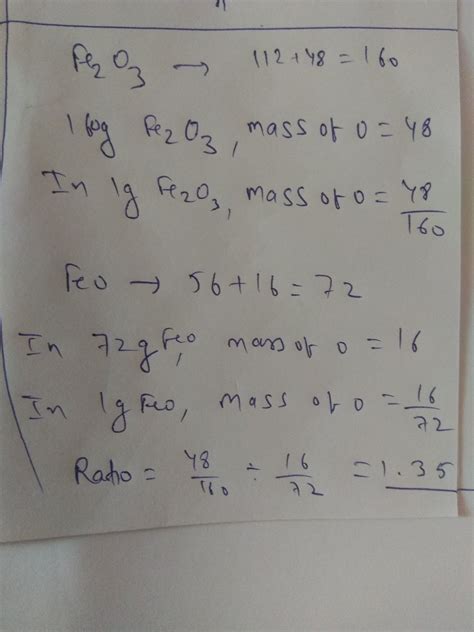 Fe2O3 → 112+48=160
160g Fe2O3, mass of O = 48
In 1g Fe2O3, mass of O = 48/160
FeO → 56+16=72
In 72g FeO, mass of O = 16
In 1g FeO, mass of O = 16/72
Ratio = 48/160 ÷ 16/72 = 1.35